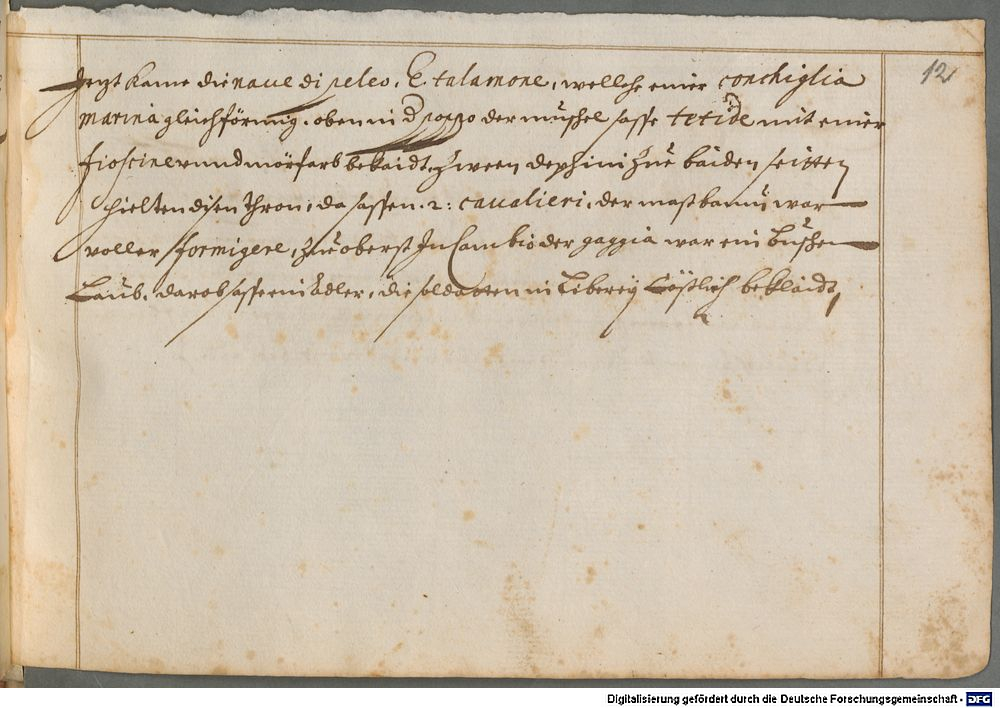 12
Jezt kame die naue di peleo. E talamone, wellche einer conchiglia
marina gleichförmig. oben in d poppo der mushel sasse tetide mit einer
fioscine rund mörfarb bekaidt. Zween dephini zue baiden seitten
hielten disen Thron, da sassen. 2: caualieri. der mastbaum war
voller formigere, zue oberst In Cambio der gaggia war ein bushen
Laub. darob sasse ein Adler, die soldatten in Liberey köstlich beklaidt,
Digitalisierung gefördert durch die Deutsche Forschungsgemeinschaft - DFG